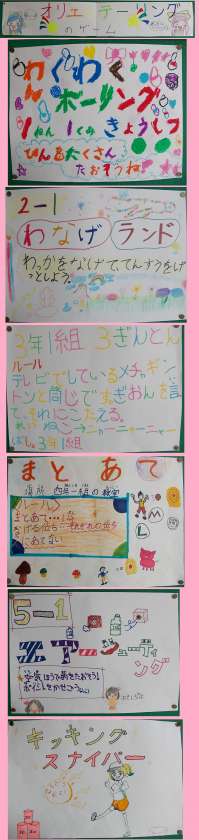 オリエンテーリング
のゲーム
わくわく
ボーリング
1ねん1くみ きょうしつ
ぴんをたくさん
たおそうね
2-1
わなげランド
わっかをなげて、てんすうをげ
っとしよう。
3年1組 3ぎんとん
ルール
テレビでしているメチャギン
トンと同じで、すきおんを言っ
て、それにこたえる。
れい ねこ→ニャーニャーニャー
ばしょ3年1組
まとあて
場所 四年一組の教室
＜ルール＞
まとあて…
5-1
エアーシューティ
ング
空気ほうで的をたおそう!
ポイントをかせごう
キッキング
スナイパー